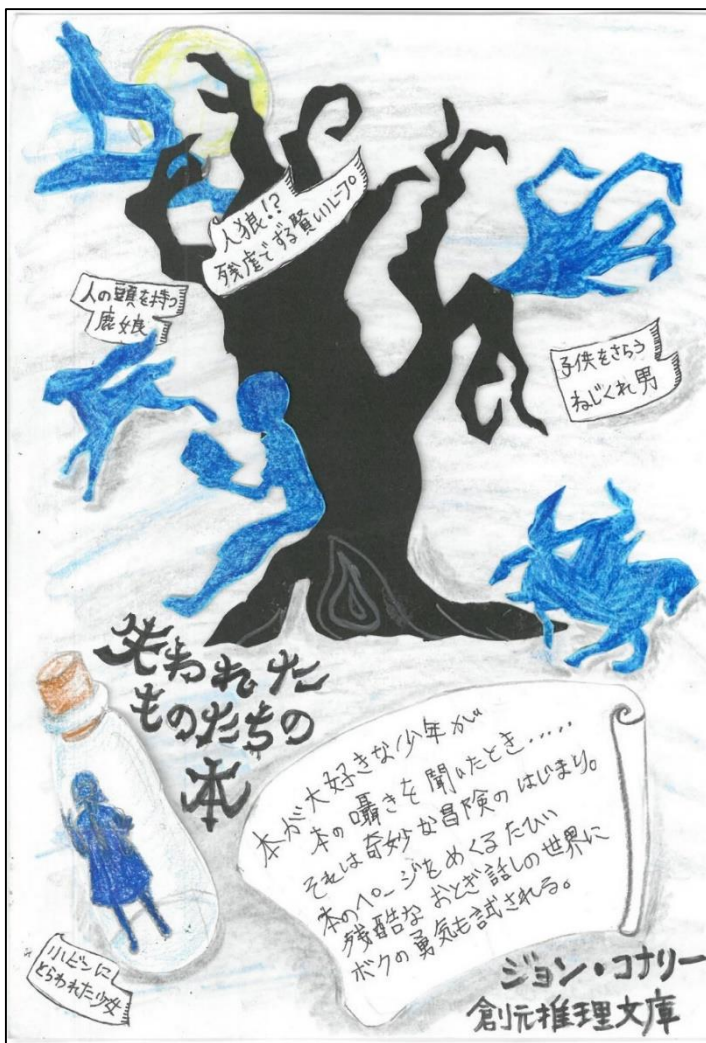 人狼!?
残虐でずる賢いループ
人の頭を持つ
鹿娘
子供をさらう
ねじくれ男
失われた
ものたちの
本
本が大好きな少年が
本の囁きを聞いたとき……
それは奇妙な冒険のはじまり。
本のページをめくるたびい
残酷なおとぎ話しの世界に
ボクの勇気も試される。
小ビンに
とらわれた少女
ジョン・コナリー
創元推理文庫